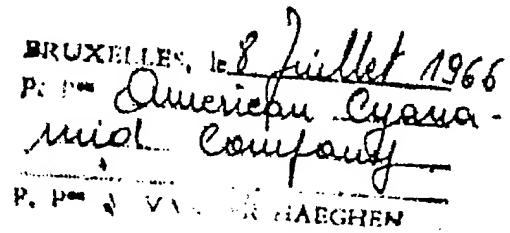 BRUXELLES, le 8 Juillet 1966
P. Pon American Cyana-
mid Company
P. Pon J. VAN DER HAEGHEN